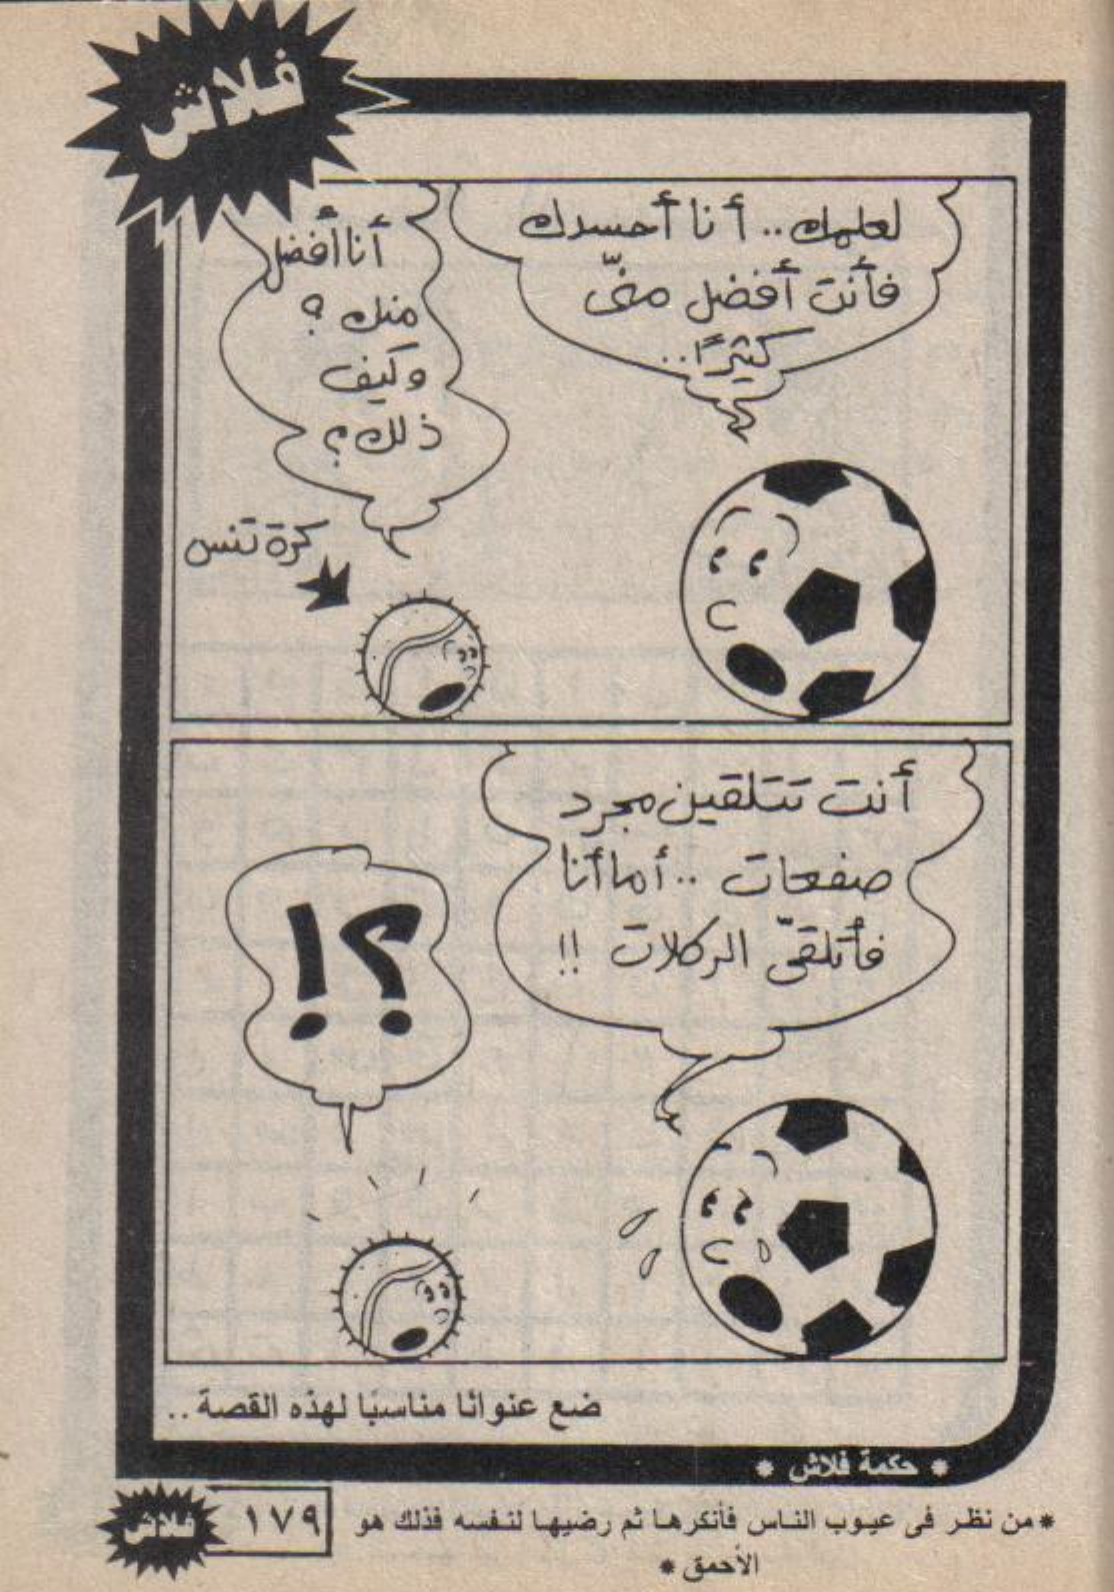 فلاش
لعلمك.. أنا أحسدك
فأنت أفضل منّى
كثيرًا..
أنا أفضل
منك؟
وكيف
ذلك؟
كرة تنس
أنت تتلقين مجرد
صفعات.. أما أنا
فأتلقّى الركلات!!
؟!
ضع عنوانًا مناسبًا لهذه القصة..
* حكمة فلاش *
* من نظر فى عيوب الناس فأنكرها ثم رضيها لنفسه فذلك هو
الأحمق *
١٧٩
فلاش